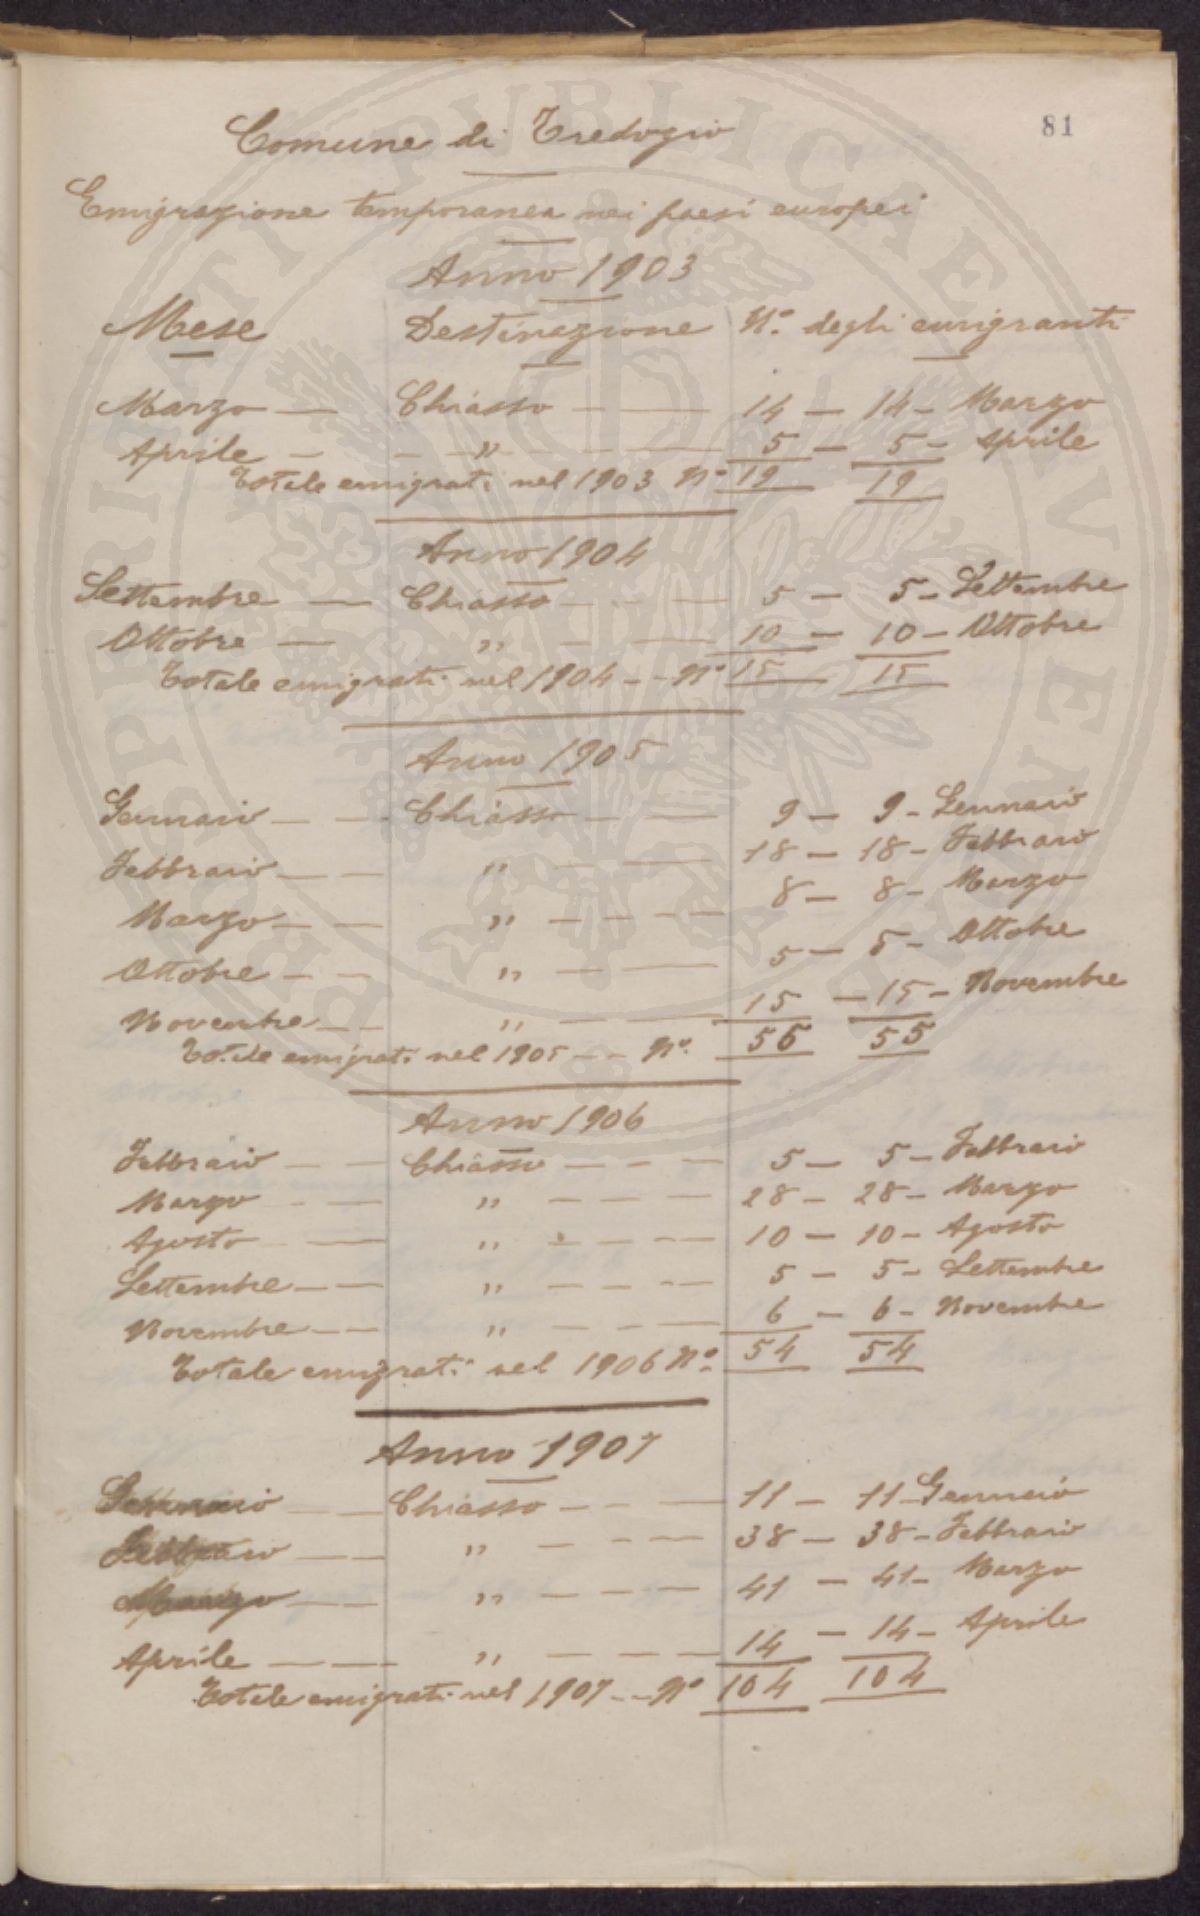 81
Comune di Tredozio
Emigrazione temporanea nei paesi europei
Anno 1903
Mese Destinazione N.° degli emigranti
Marzo — Chiasso — — 14 — 14 — Marzo
Aprile — — „ — — — 5 — 5 — Aprile
Totale emigrati nel 1903 N° 19 19
Anno 1904
Settembre — Chiasso — — — 5 — 5 — Settembre
Ottobre — „ — — 10 — 10 — Ottobre
Totale emigrati nel 1904 — — N° 15 15
Anno 1905
Gennaio — — Chiasso — — 9 — 9 — Gennaio
Febbraio — — „ — — 18 — 18 — Febbraio
Marzo — — „ — — — — 8 — 8 — Marzo
Ottobre — — „ — — 5 — 5 — Ottobre
Novembre — — „ — — 15 — 15 — Novembre
Totale emigrati nel 1905 — — N°. 55 55
Anno 1906
Febbraio — — Chiasso — — — 5 — 5 — Febbraio
Marzo — — „ — — — — 28 — 28 — Marzo
Agosto — „ — — — — 10 — 10 — Agosto
Settembre — — „ — — — — 5 — 5 — Settembre
Novembre — — „ — — — 6 — 6 — Novembre
Totale emigrati nel 1906 N° 54 54
Anno 1907
Gennaio — — Chiasso — — — 11 — 11 — Gennaio
Febbraio — — „ — — — — 38 — 38 — Febbraio
Marzo — — „ — — — — 41 — 41 — Marzo
Aprile — — „ — — — — 14 — 14 — Aprile
Totale emigrati nel 1907 — — N° 104 104
PROPRIETATI PUBLICAE EVOLVENDAE